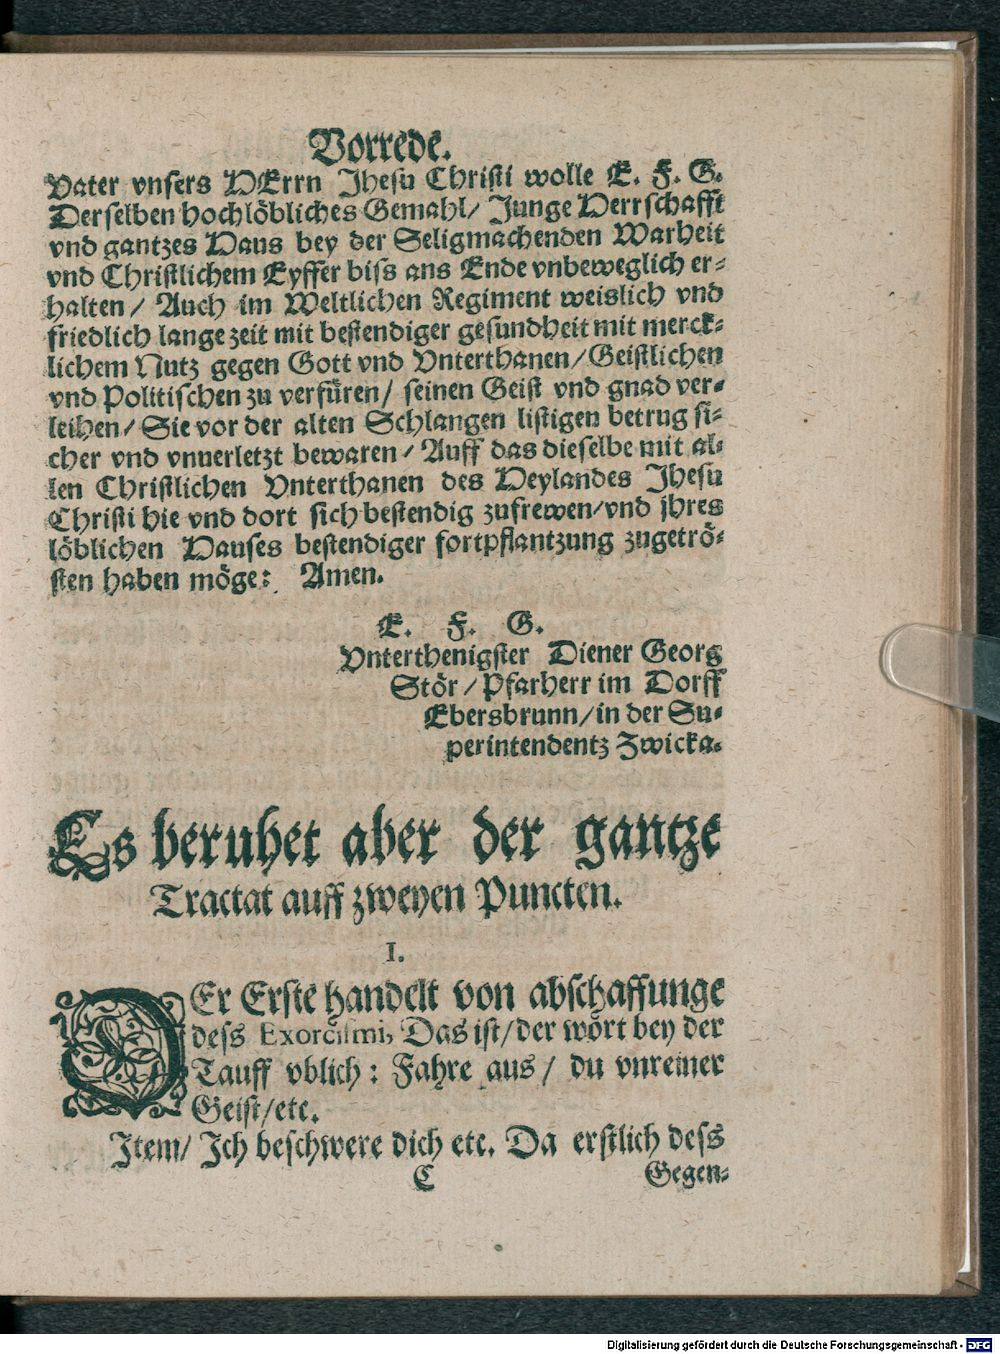 Vorrede.
Vater vnsers HErrn Jhesu Christi wolle E. F. G.
Derselben hochlöbliches Gemahl/ Junge Herrschafft
vnd gantzes Haus bey der Seligmachenden Warheit
vnd Christlichem Eyffer biss ans Ende vnbeweglich er-
halten/ Auch im Weltlichen Regiment weislich vnd
friedlich lange zeit mit bestendiger gesundheit mit merck-
lichem Nutz gegen Gott vnd Vnterthanen/ Geistlichen
vnd Politischen zu verfüren/ seinen Geist vnd gnad ver-
leihen/ Sie vor der alten Schlangen listigen betrug si-
cher vnd vnuerletzt bewaren/ Auff das dieselbe mit al-
len Christlichen Vnterthanen des Heylandes Jhesu
Christi hie vnd dort sich bestendig zufrewen/ vnd jhres
löblichen Hauses bestendiger fortpflantzung zugetrö-
sten haben möge: Amen.
E. F. G.
Vnterthenigster Diener Georg
Stör/ Pfarherr im Dorff
Ebersbrunn/ in der Su-
perintendentz Zwicka.
Es beruhet aber der gantze
Tractat auff zweyen Puncten.
I.
DEr Erste handelt von abschaffunge
dess Exorcismi, Das ist/ der wört bey der
Tauff vblich: Fahre aus/ du vnreiner
Geist/ etc.
Item/ Ich beschwere dich etc. Da erstlich dess
C Gegen-
Digitalisierung gefördert durch die Deutsche Forschungsgemeinschaft - DFG